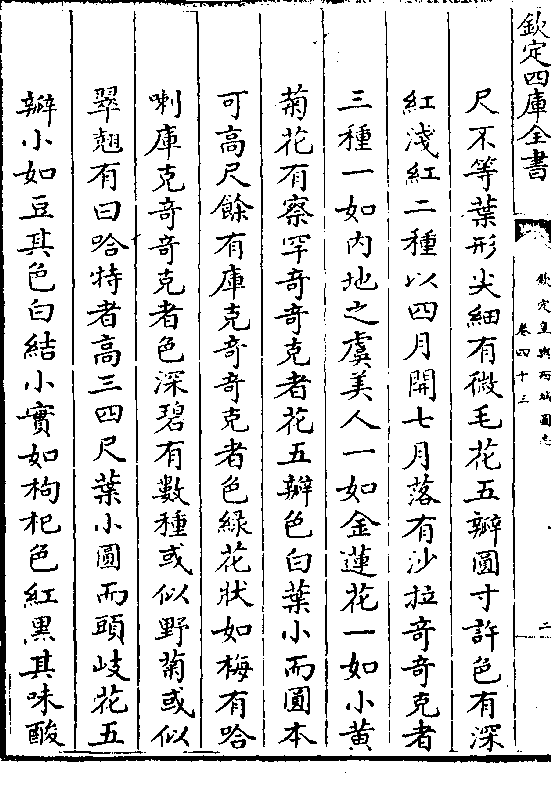 欽定四庫全書
欽定皇輿西域圖志
卷四十三
二
尺不等葉形尖細有微毛花五瓣圓寸許色有深
紅淺紅二種以四月開七月落有沙拉奇奇克者
三種一如内地之虞美人一如金蓮花一如小黄
菊花有察罕奇奇克者花五瓣色白葉小而圓本
可高尺餘有庫克奇奇克者色綠花狀如梅有哈
喇庫克奇奇克者色深碧有數種或似野菊或似
翠翹有曰哈特者高三四尺葉小圓而頭岐花五
瓣小如豆其色白結小實如枸杞色紅黑其味酸